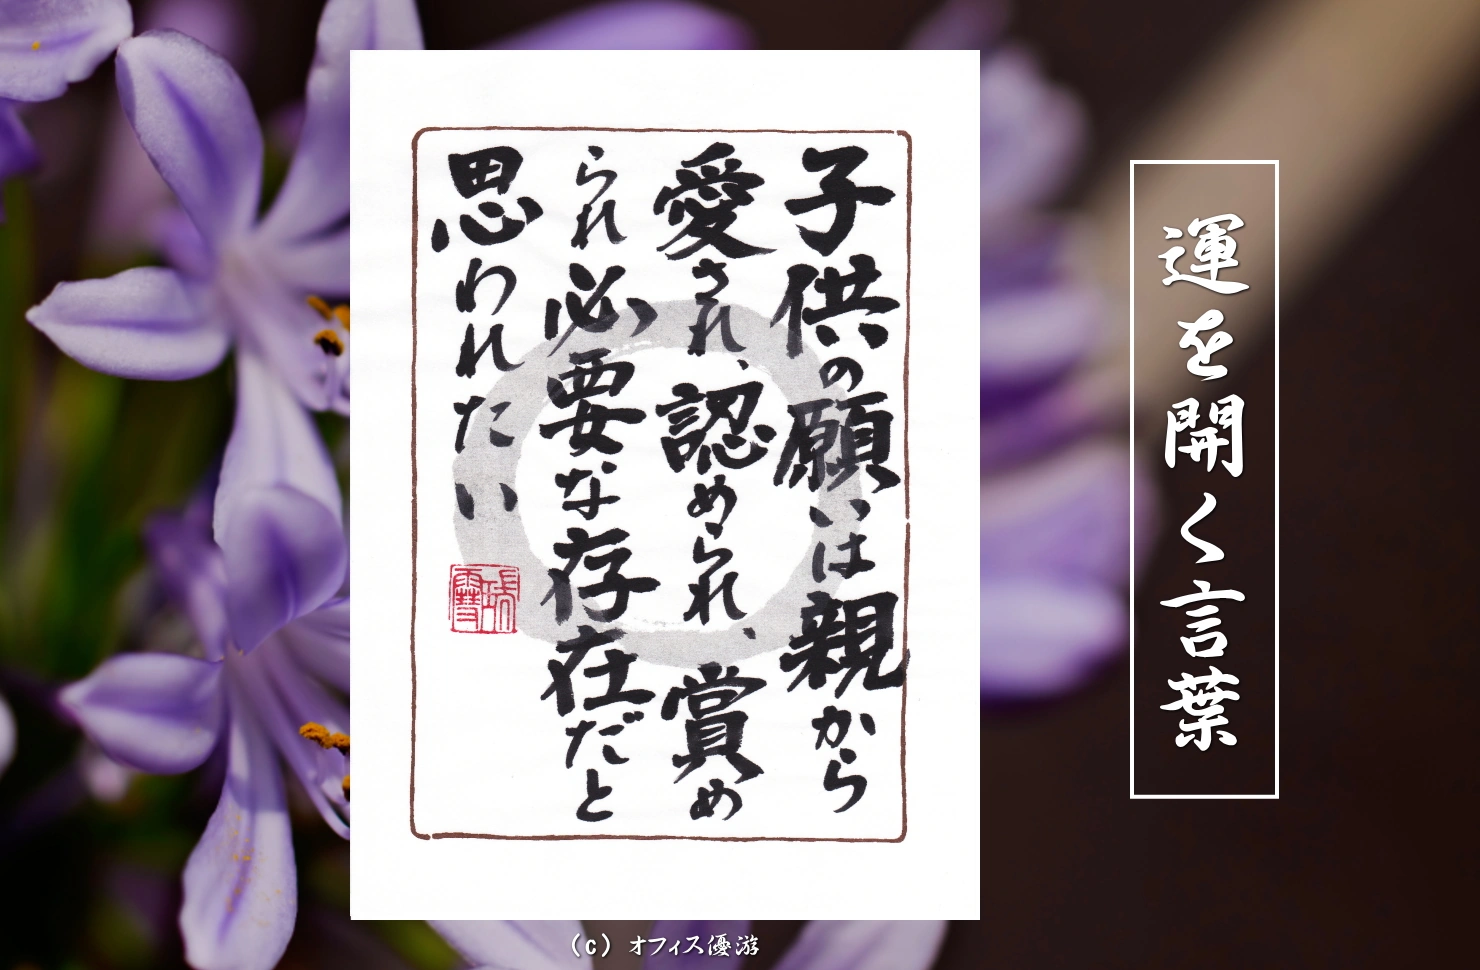 運を開く言葉
子供の願いは親から
愛され、認められ、賞め
られ必要な存在だと
思われたい
(c) オフィス優游